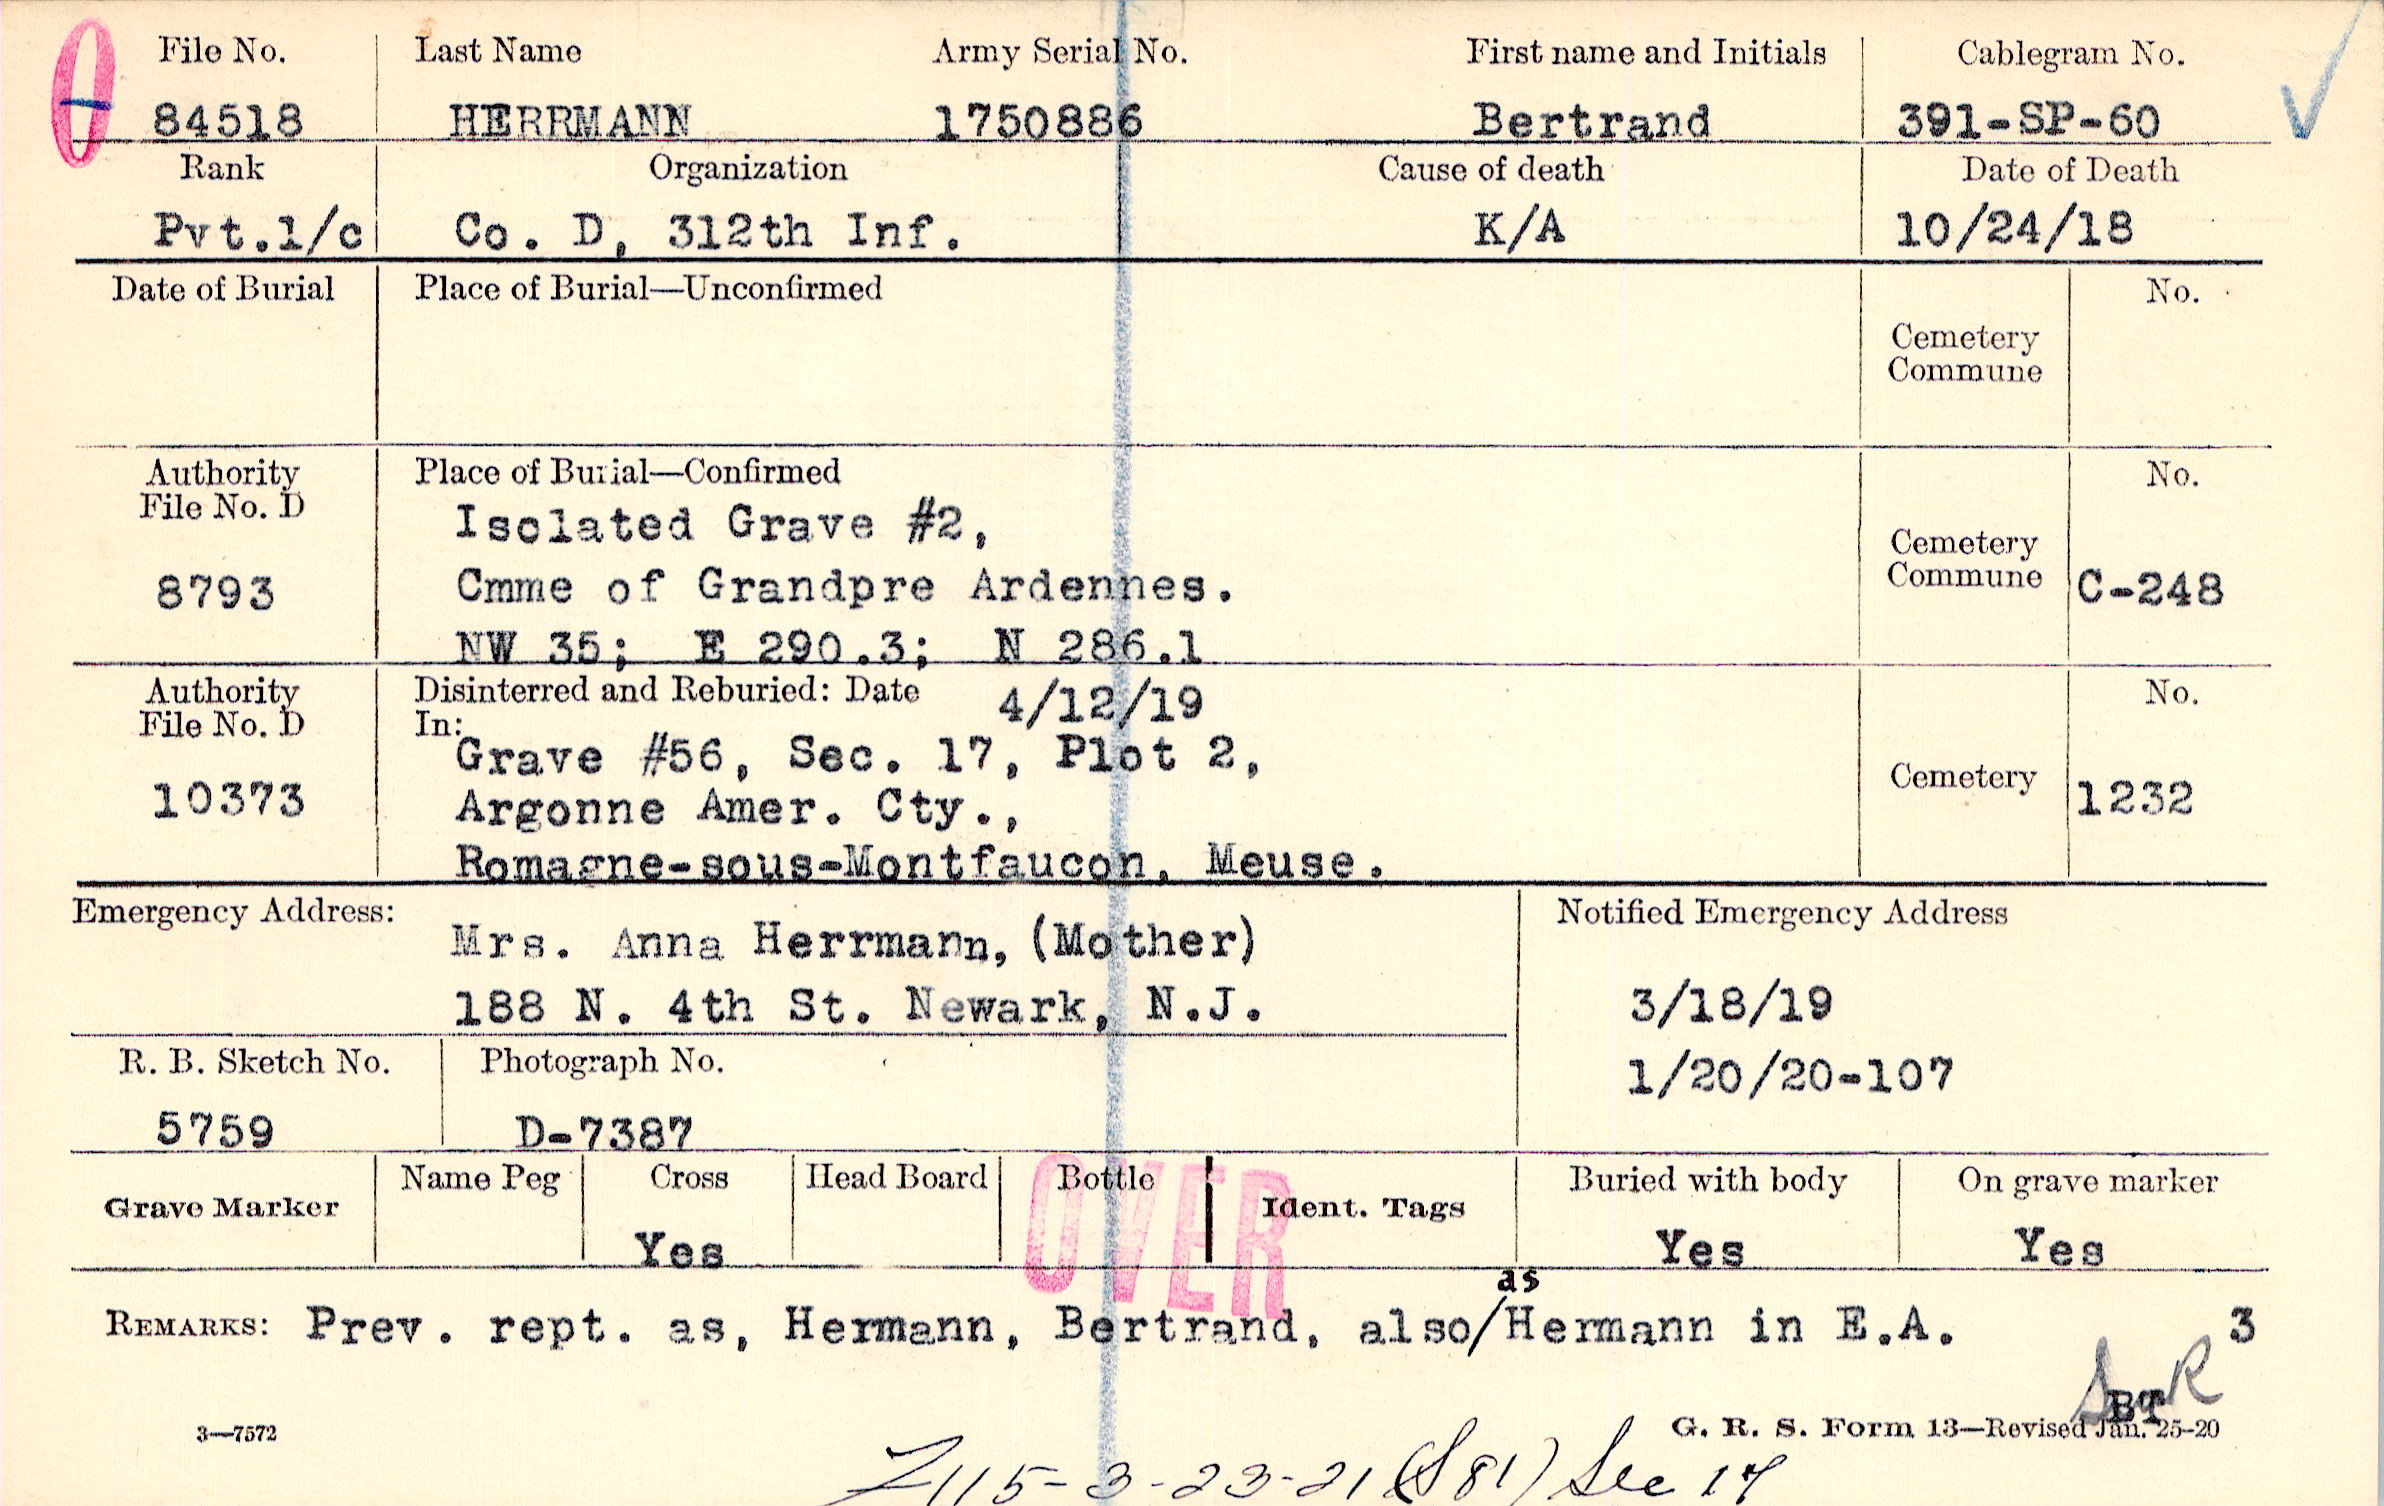 File No. Last Name Army Serial No. First name and Initials Cablegram No.
84518 HERRMANN 1750886 Bertrand 391-SP-60
Rank Organization Cause of death Date of Death
Pvt.1/c Co. D, 312th Inf. K/A 10/24/18
Date of Burial Place of Burial—Unconfirmed No.
Cemetery
Commune
Authority Place of Burial—Confirmed No.
File No. D
Isolated Grave #2,
Cemetery
8793 Cmme of Grandpre Ardennes. Commune C-248
NW 35; E 290.3; N 286.1
Authority Disinterred and Reburied: Date 4/12/19 No.
File No. D In:
Grave #56, Sec. 17, Plot 2,
10373 Argonne Amer. Cty., Cemetery 1232
Romagne-sous-Montfaucon, Meuse.
Emergency Address: Notified Emergency Address
Mrs. Anna Herrmann, (Mother)
188 N. 4th St. Newark, N.J. 3/18/19
R. B. Sketch No. Photograph No. 1/20/20-107
5759 D-7387
Grave Marker Name Peg Cross Head Board Bottle Ident. Tags Buried with body On grave marker
Yes Yes Yes
OVER
as
REMARKS: Prev. rept. as, Hermann, Bertrand, also/Hermann in E.A. 3
BT
3—7572 G. R. S. Form 13—Revised Jan. 25-20
115-3-23-21 (S81) Sec 17